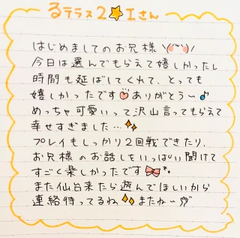 るテラス2⭐Iさん
はじめましてのお兄様
今日は選んでもらえて嬉しかったし
時間も延ばしてくれて、とっても
嬉しかったです ありがとう〜♪
めっちゃ可愛いって沢山言ってもらえて
幸せすぎました…✨
プレイもしっかり2回戦できたり、
お兄様のお話しをいっぱい聞けて
すごく楽しかったです
また仙台来たら遊んでほしいから
連絡待ってるね またね〜